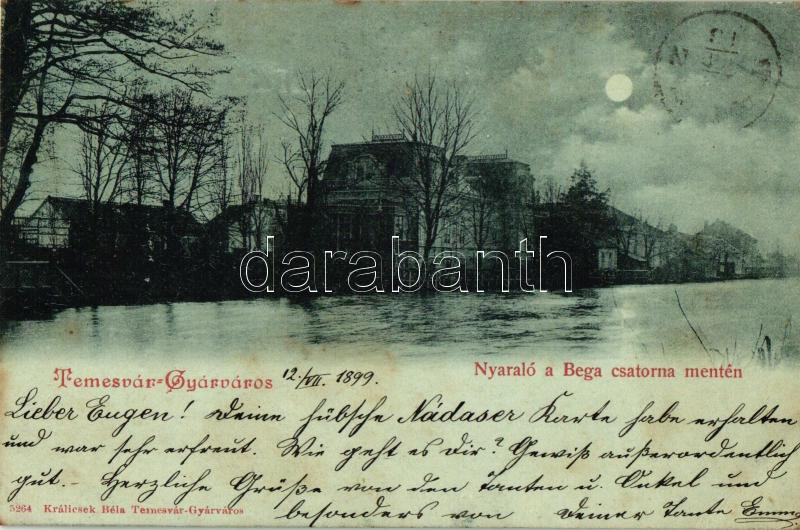 darabanth
Temesvár-Gyárváros 12./VII. 1899.
Nyaraló a Bega csatorna mentén
Lieber Eugen! Deine hübsche Nádaser Karte habe erhalten
und war sehr erfreut. Wie geht es Dir? Gewiß außerordentlich
gut. - Herzliche Grüße von den Tanten u. Onkel und
besonders von Deiner Tante Emma
5264 Králicsek Béla Temesvár-Gyárváros